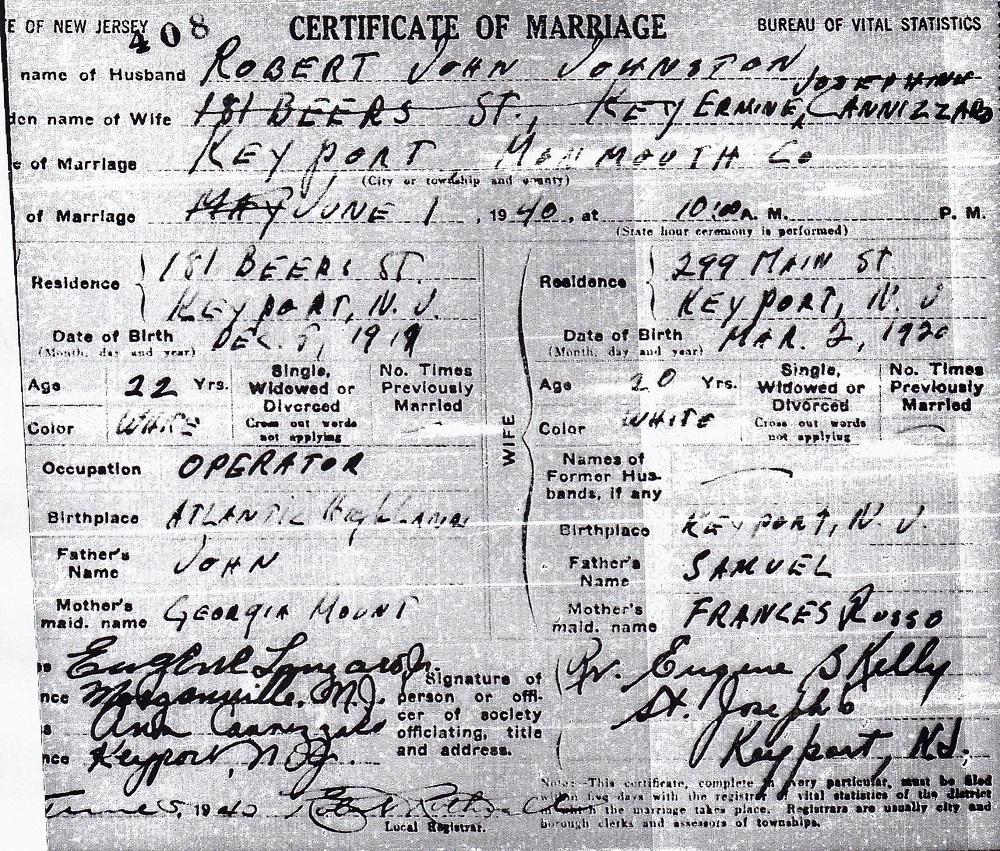 E OF NEW JERSEY 408 CERTIFICATE OF MARRIAGE BUREAU OF VITAL STATISTICS
name of Husband ROBERT JOHN JOHNSTON
JOSEPHINE
den name of Wife 181 BEERS ST., KEY ERMINE, CANNIZZARO
e of Marriage KEYPORT MONMOUTH Co
(City or township and county)
of Marriage MAY JUNE 1, 1940, at 10:00 A. M. P. M.
(State hour ceremony is performed)
Residence 181 BEERS ST.
KEYPORT, N. J.
Date of Birth DEC. , 1919
(Month, day and year)
Age 22 Yrs. Single, Widowed or Divorced No. Times Previously Married
Color WHITE Cross out words not applying
Occupation OPERATOR
Birthplace ATLANTIC Highlands
Father's Name JOHN
Mother's maid. name GEORGIA MOUNT
WIFE
Residence 299 MAIN ST.
KEYPORT, N. J
Date of Birth MAR. 2, 1920
(Month, day and year)
Age 20 Yrs. Single, Widowed or Divorced No. Times Previously Married
Color WHITE Cross out words not applying
Names of Former Husbands, if any
Birthplace KEYPORT, N. J.
Father's Name SAMUEL
Mother's maid. name FRANCES RUSSO
s Eugene
nce Morganville, N.J.
s Ann Cannizzaro
nce Keyport, N.J.
Signature of
person or offi-
cer of society
officiating, title
and address.
Rv. Eugene B Kelly
St. Josephs
Keyport, NJ.
June 5, 1940
Local Registrar.
Note:—This certificate, complete in every particular, must be filed
within two days with the registrar of vital statistics of the district
in which the marriage takes place. Registrars are usually city and
borough clerks and assessors of townships.